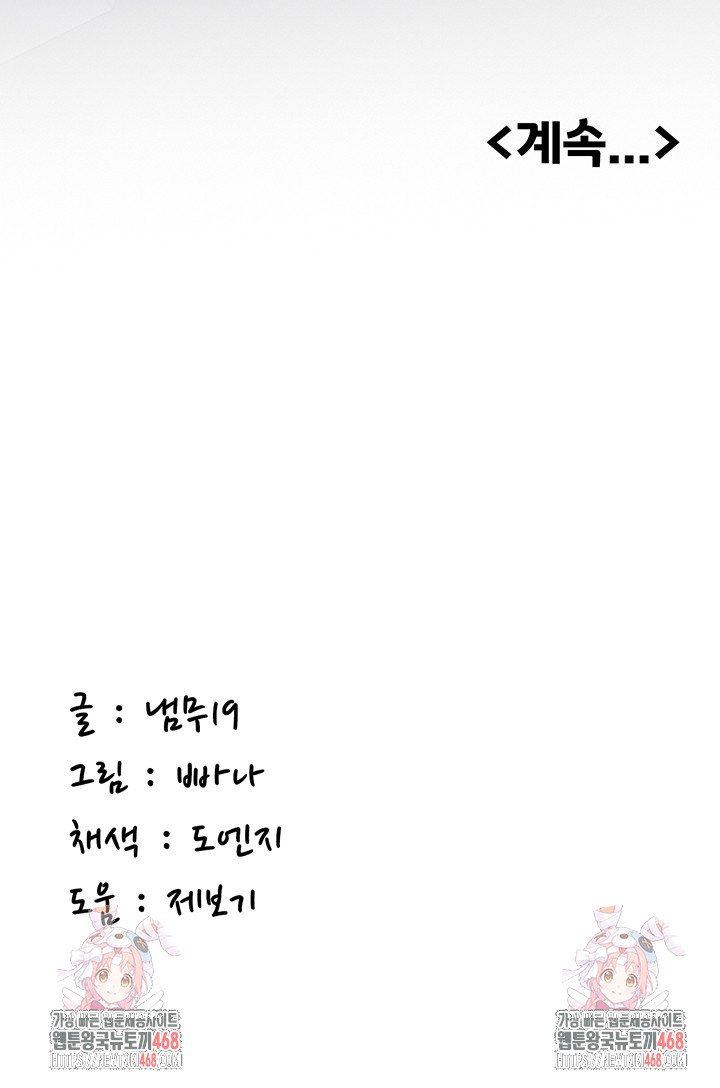 <계속...>
글 : 냄무19
그림 : 빠나
채색 : 도엔지
도움 : 제보기
가장 빠른 웹툰제공사이트 가장 빠른 웹툰제공사이트
웹툰왕국뉴토끼468 웹툰왕국뉴토끼468
HTTPS://NEWTOKI468.COM HTTPS://NEWTOKI468.COM